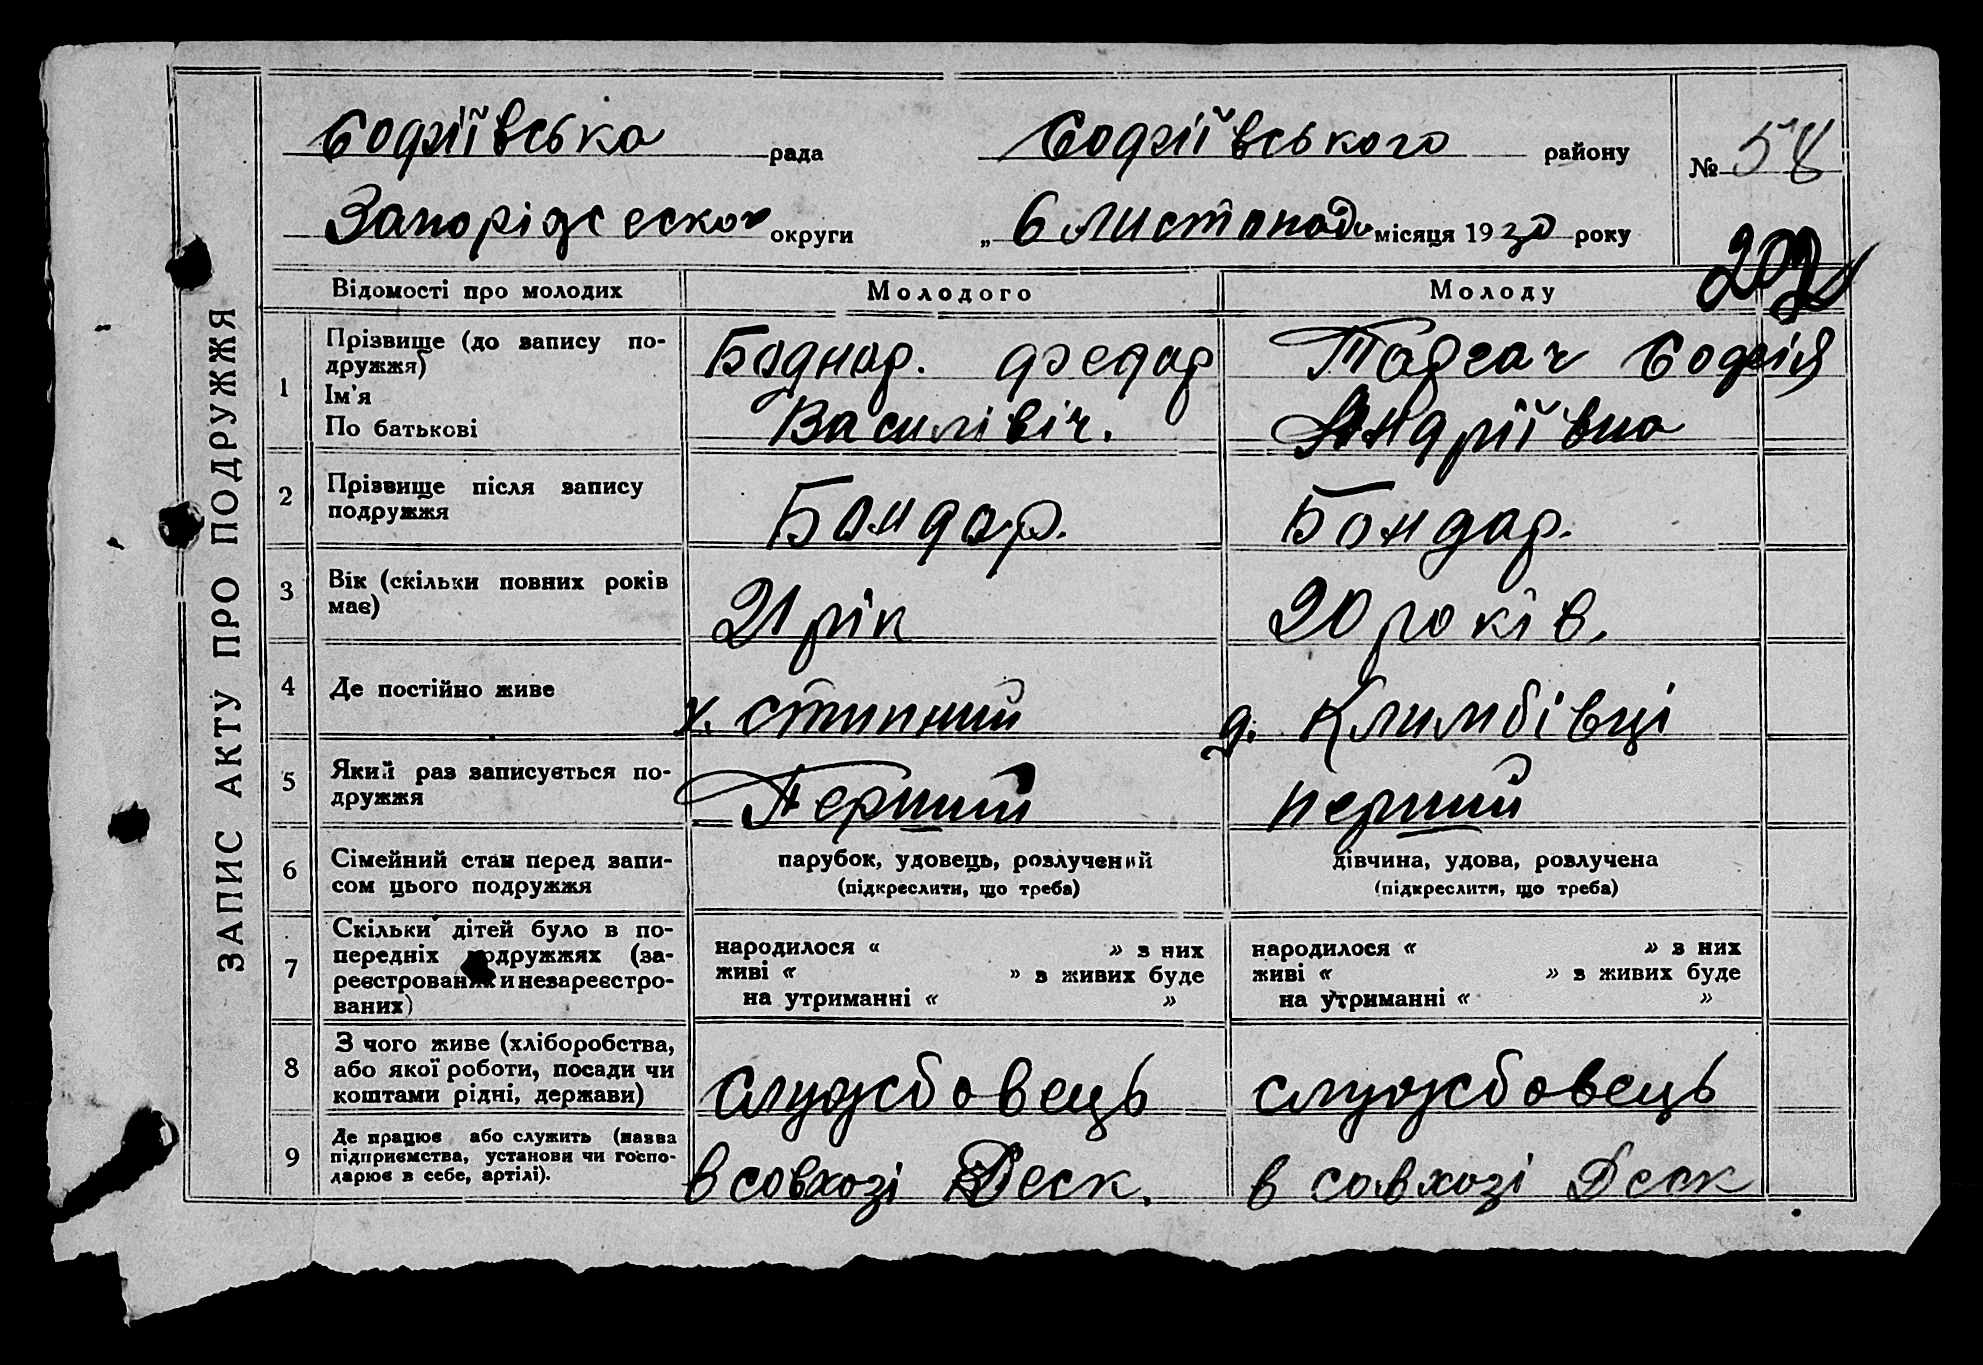 ЗАПИС АКТУ ПРО ПОДРУЖЖЯ
Софіївська рада Софіївського району № 58
округи „ 6 листопада місяця 1930 року
202
Відомості про молодих Молодого Молоду
1 Прізвище (до запису подружжя) Боднар. Федар Софія
Ім'я
По батькові Василівіч. Андріївна
2 Прізвище після запису подружжя Бондар. Бондар.
3 Вік (скільки повних років має) 21 рік 20 років.
4 Де постійно живе х. стипний д.
5 Який раз записується подружжя Перший перший
6 Сімейний стан перед записом цього подружжя парубок, удовець, розлучений дівчина, удова, розлучена
(підкреслити, що треба) (підкреслити, що треба)
7 Скільки дітей було в попередніх подружжях (зареєстрованих и незареєстрованих)
народилося « » з них народилося « » з них
живі « » з живих буде живі « » з живих буде
на утриманні « » на утриманні « »
8 З чого живе (хліборобства, або якої роботи, посади чи коштами рідні, держави) службовець службовець
9 Де працює або служить (назва підприємства, установи чи господарює в себе, артілі). в совхозі Деск. в совхозі Деск